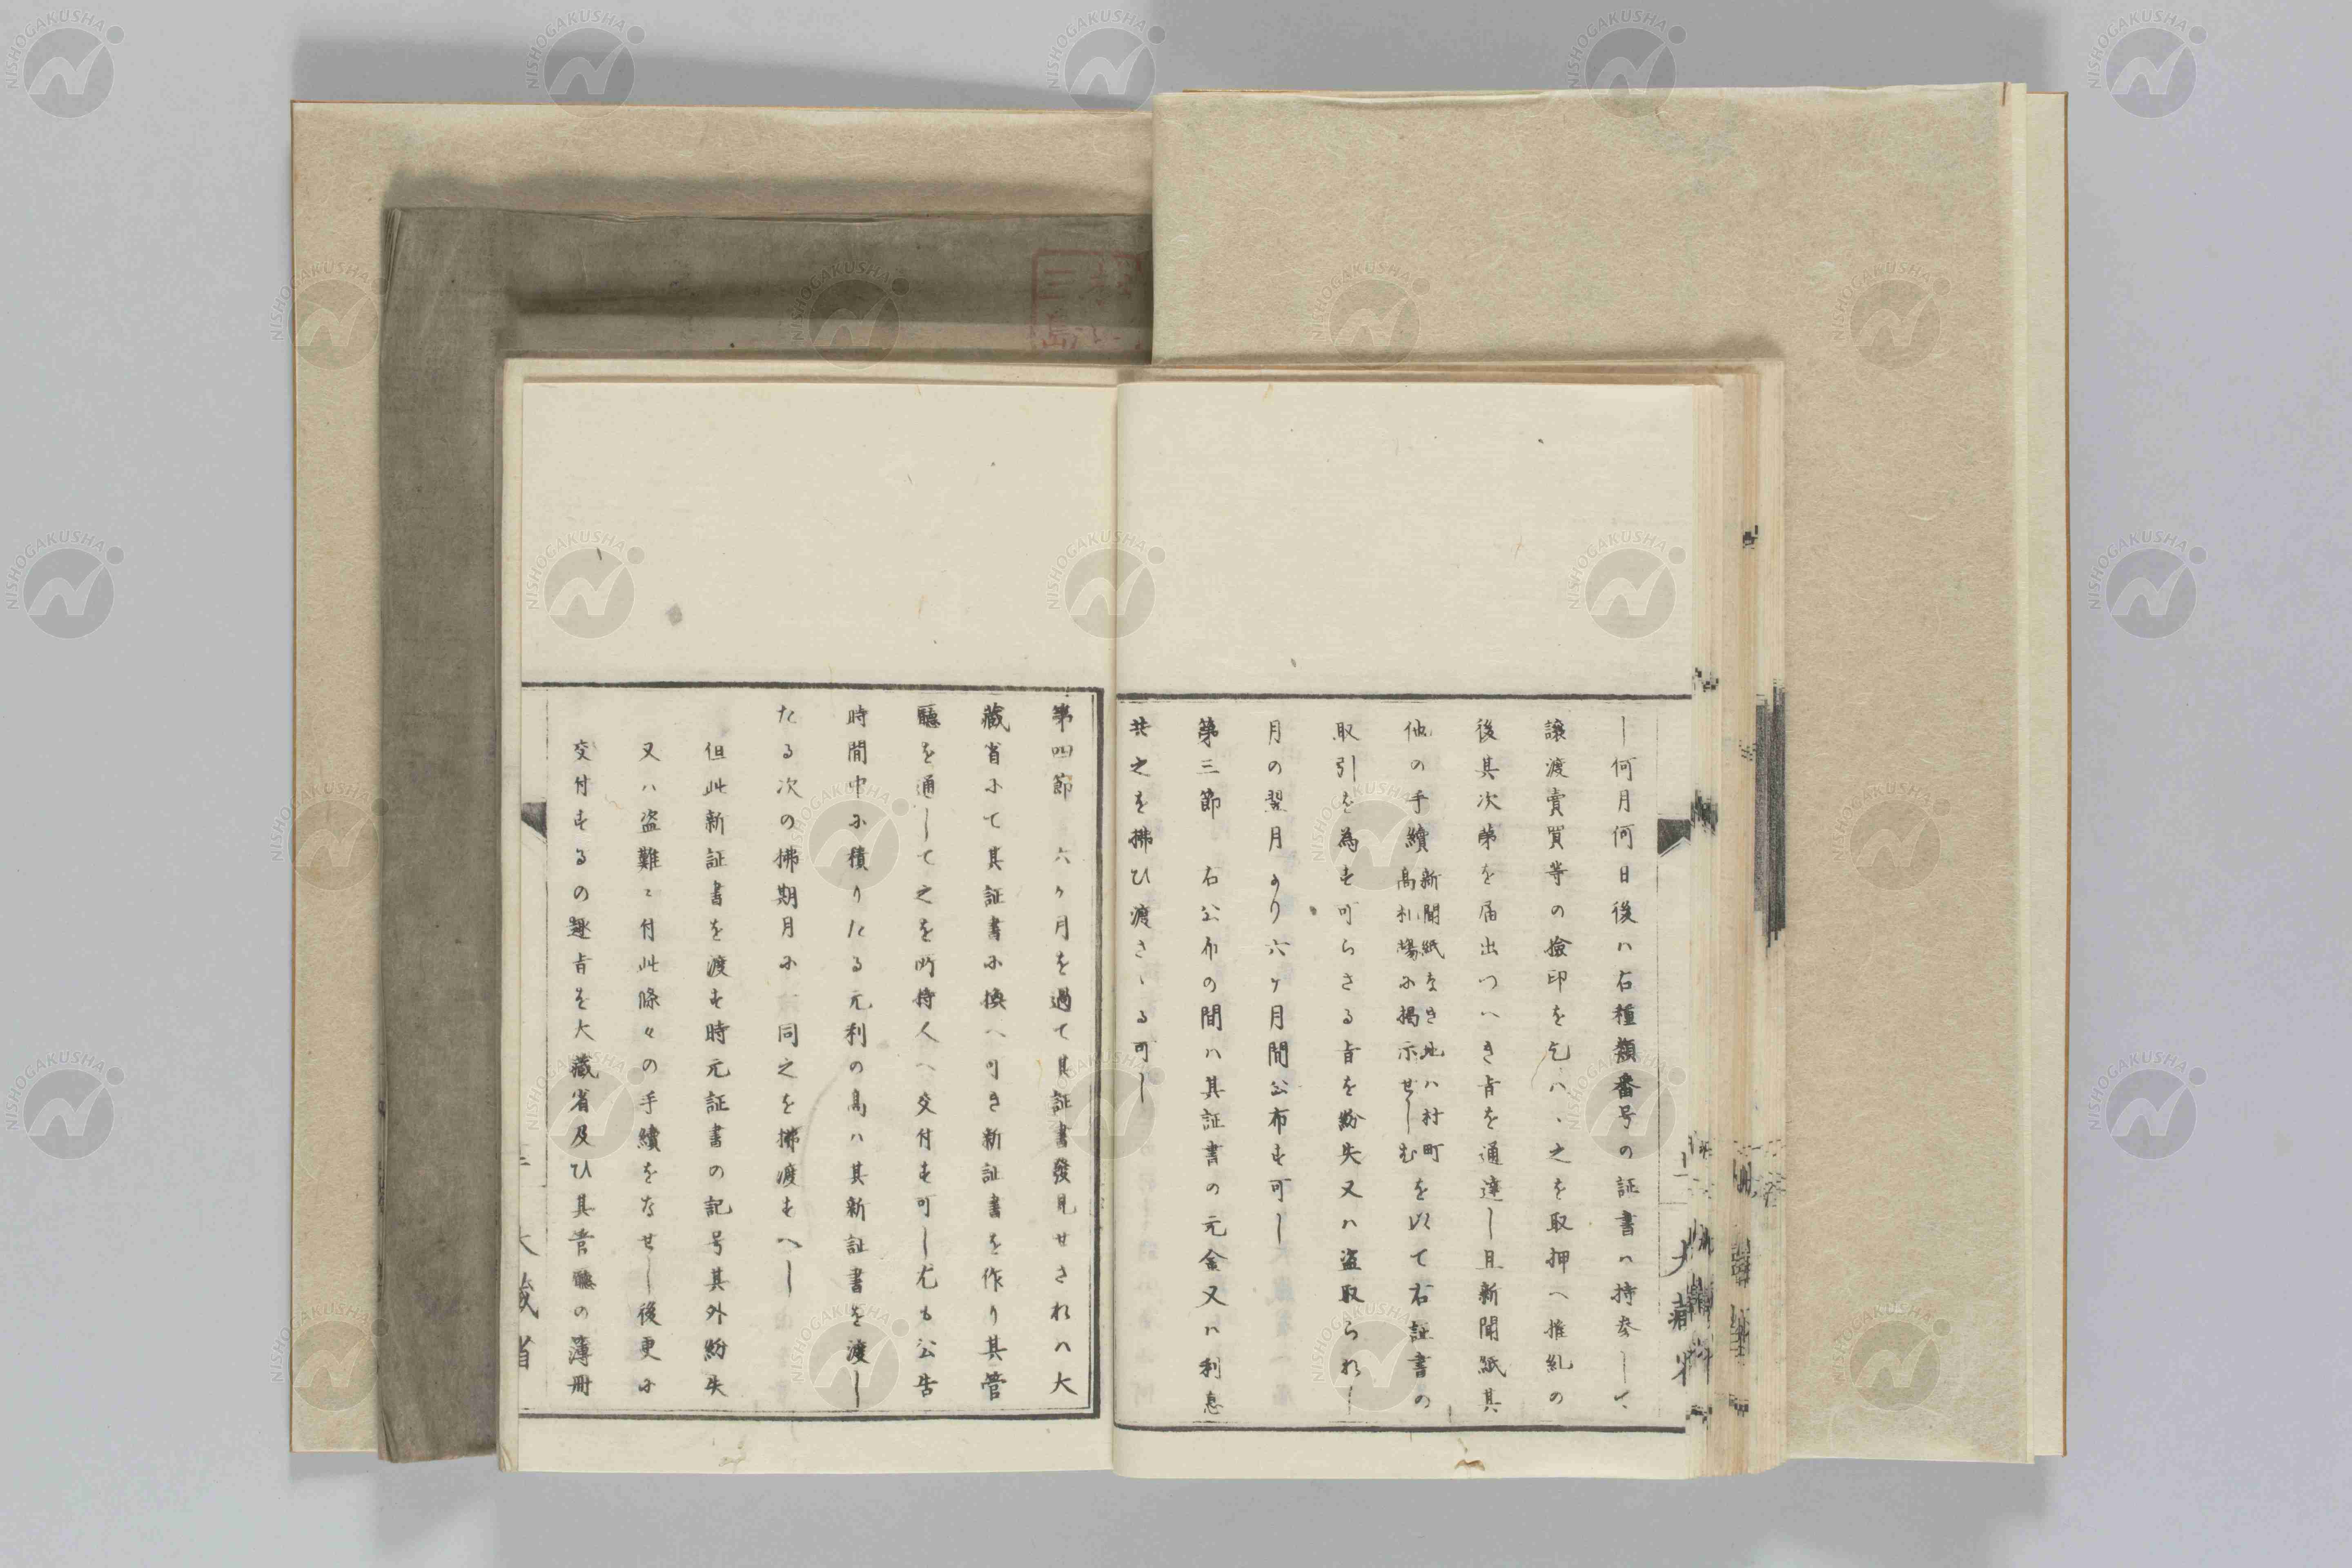 し何月何日後ハ右種類番号の証書ハ持参して
譲渡賣買等の撿印を乞ハヽ之を取押へ推糺の
後其次第を届出つへき旨を通達し且新聞紙其
他の手續新聞紙なき地ハ村町高札場に掲示せしむを以て右証書の
取引を為す可らさる旨を紛失又ハ盗取られし
月の翌月より六ヶ月間公布す可し
第三節 右公布の間ハ其証書の元金又ハ利息
共之を拂ひ渡さゝる可し
第四節 六ヶ月を過て其証書發見せされハ大
藏省にて其証書に換へ可き新証書を作り其管
聽を通して之を所持人へ交付す可し尤も公告
時間中に積りたる元利の高ハ其新証書を渡し
たる次の拂期月に 同之を拂渡すへし
但此新証書を渡す時元証書の記号其外紛失
又ハ盗難ニ付此條々の手續をなせし後更に
交付するの趣旨を大藏省及ひ其管聽の薄冊
大藏省
NISHOGAKUSHA